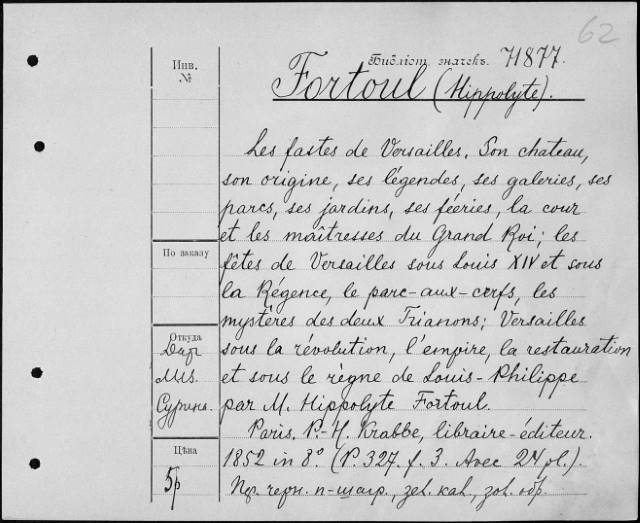 62
Библіот. значекъ. 71877.
Инв.
№
Fortoul (Hippolyte).
Les fastes de Versailles. Son chateau,
son origine, ses légendes, ses galeries, ses
parcs, ses jardins, ses féeries, la cour
et les maîtresses du Grand Roi; les
По заказу
fêtes de Versailles sous Louis XIV et sous
la Régence, le parc-aux-cerfs, les
mystères des deux Trianons; Versailles
Откуда
Дар
sous la révolution, l'empire, la restauration
et sous le règne de Louis-Philippe
par M. Hippolyte Fortoul.
Paris, P.-H. Krabbe, libraire-éditeur.
Цѣна
5р
1852 in 8º (P. 327. f. 3. Avec 24 pl.).
черн.